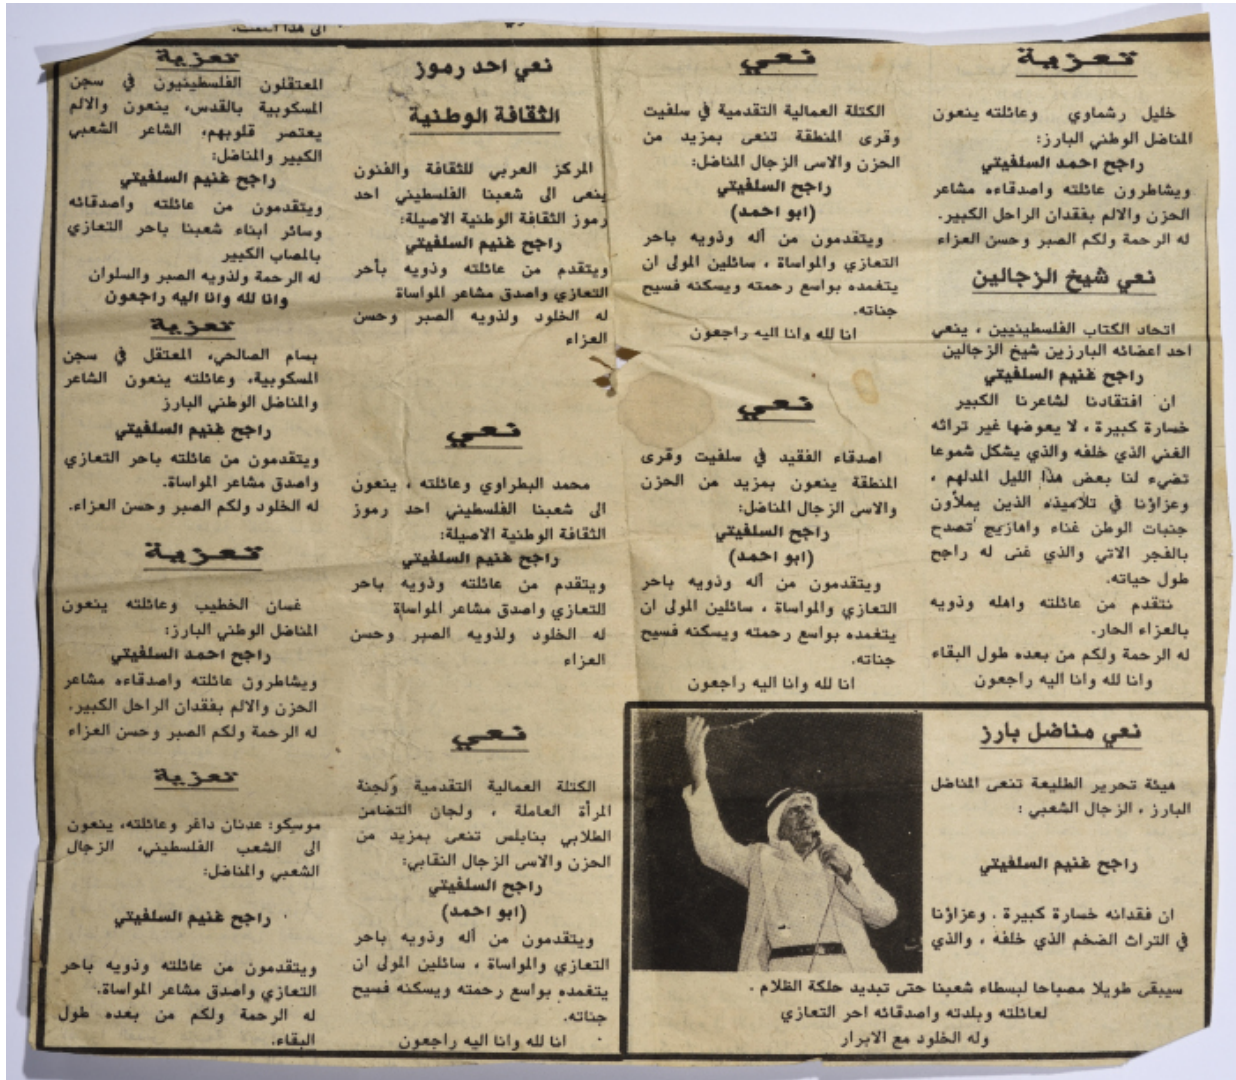 تعزية
خليل رشماوي وعائلته ينعون
المناضل الوطني البارز:
راجح احمد السلفيتي
ويشاطرون عائلته واصدقاءه مشاعر
الحزن والالم بفقدان الراحل الكبير.
له الرحمة ولكم الصبر وحسن العزاء
نعي شيخ الزجالين
اتحاد الكتاب الفلسطينيين ، ينعي
احد اعضائه البارزين شيخ الزجالين
راجح غنيم السلفيتي
ان افتقادنا لشاعرنا الكبير
خسارة كبيرة ، لا يعوضها غير تراثه
الغني الذي خلفه والذي يشكل شموعا
تضيء لنا بعض هذا الليل المدلهم ،
وعزاؤنا في تلاميذه الذين يملأون
جنبات الوطن غناء واهازيج تصدح
بالفجر الاتي والذي غنى له راجح
طول حياته.
نتقدم من عائلته واهله وذويه
بالعزاء الحار.
له الرحمة ولكم من بعده طول البقاء
وانا لله وانا اليه راجعون
نعي
الكتلة العمالية التقدمية في سلفيت
وقرى المنطقة تنعى بمزيد من
الحزن والاسى الزجال المناضل:
راجح السلفيتي
(ابو احمد)
ويتقدمون من أله وذويه باحر
التعازي والمواساة ، سائلين المولى ان
يتغمده بواسع رحمته ويسكنه فسيح
جناته.
انا لله وانا اليه راجعون
نعي
اصدقاء الفقيد في سلفيت وقرى
المنطقة ينعون بمزيد من الحزن
والاسى الزجال المناضل:
راجح السلفيتي
(ابو احمد)
ويتقدمون من أله وذويه باحر
التعازي والمواساة ، سائلين المولى ان
يتغمده بواسع رحمته ويسكنه فسيح
جناته.
انا لله وانا اليه راجعون
نعي مناضل بارز
هيئة تحرير الطليعة تنعى المناضل
البارز ، الزجال الشعبي :
راجح غنيم السلفيتي
ان فقدانه خسارة كبيرة . وعزاؤنا
في التراث الضخم الذي خلفه ، والذي
سيبقى طويلا مصباحا لبسطاء شعبنا حتى تبديد حلكة الظلام .
لعائلته وبلدته واصدقائه احر التعازي
وله الخلود مع الابرار
نعي احد رموز
الثقافة الوطنية
المركز العربي للثقافة والفنون
ينعى الى شعبنا الفلسطيني احد
رموز الثقافة الوطنية الاصيلة:
راجح غنيم السلفيتي
ويتقدم من عائلته وذويه بأحر
التعازي واصدق مشاعر المواساة
له الخلود ولذويه الصبر وحسن
العزاء
نعي
محمد البطراوي وعائلته ، ينعون
الى شعبنا الفلسطيني احد رموز
الثقافة الوطنية الاصيلة:
راجح غنيم السلفيتي
ويتقدم من عائلته وذويه باحر
التعازي واصدق مشاعر المواساة
له الخلود ولذويه الصبر وحسن
العزاء
نعي
الكتلة العمالية التقدمية ولجنة
المرأة العاملة ، ولجان التضامن
الطلابي بنابلس تنعى بمزيد من
الحزن والاسى الزجال النقابي:
راجح السلفيتي
(ابو احمد)
ويتقدمون من أله وذويه باحر
التعازي والمواساة ، سائلين المولى ان
يتغمده بواسع رحمته ويسكنه فسيح
جناته.
انا لله وانا اليه راجعون
تعزية
المعتقلون الفلسطينيون في سجن
المسكوبية بالقدس، ينعون والالم
يعتصر قلوبهم، الشاعر الشعبي
الكبير والمناضل:
راجح غنيم السلفيتي
ويتقدمون من عائلته واصدقائه
وسائر ابناء شعبنا باحر التعازي
بالمصاب الكبير
له الرحمة ولذويه الصبر والسلوان
وانا لله وانا اليه راجعون
تعزية
بسام الصالحي، المعتقل في سجن
المسكوبية، وعائلته ينعون الشاعر
والمناضل الوطني البارز
راجح غنيم السلفيتي
ويتقدمون من عائلته باحر التعازي
واصدق مشاعر المواساة.
له الخلود ولكم الصبر وحسن العزاء.
تعزية
غسان الخطيب وعائلته ينعون
المناضل الوطني البارز:
راجح احمد السلفيتي
ويشاطرون عائلته واصدقاءه مشاعر
الحزن والالم بفقدان الراحل الكبير.
له الرحمة ولكم الصبر وحسن العزاء
تعزية
موسكو: عدنان داغر وعائلته، ينعون
الى الشعب الفلسطيني، الزجال
الشعبي والمناضل:
راجح غنيم السلفيتي
ويتقدمون من عائلته وذويه باحر
التعازي واصدق مشاعر المواساة.
له الرحمة ولكم من بعده طول
البقاء.